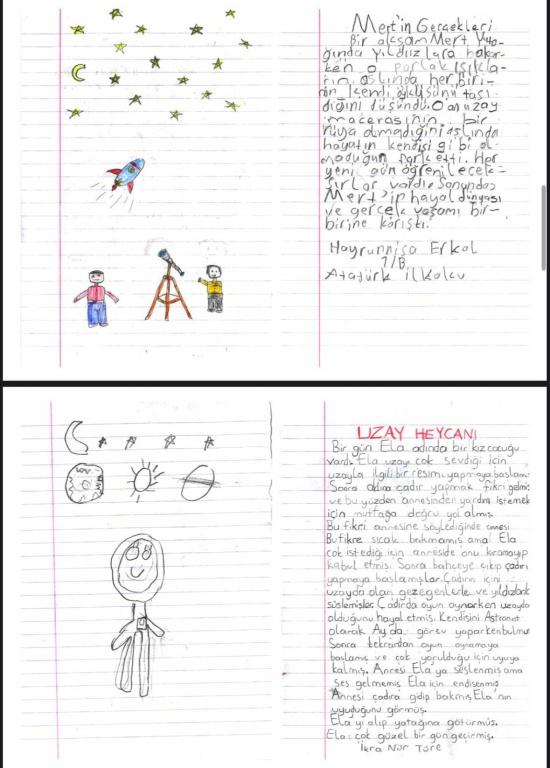 Mert'in Gerçekleri
Bir akşam Mert yata-
ğında yıldızlara bakar-
ken o parlak ışıkla-
rın aslında her biri-
nin kendi öyküsünü taşı-
dığını düşündü. O an uzay
macerasının bir
rüya olmadığını aslında
hayatın kendisi gibi ol-
maduğun fark etti. Her
yeni gün öğrenilecek
sırlar vardı. Sonunda
Mert'in hayal dünyası
ve gerçek yaşamı bir-
birine karıştı.
Hayrunnisa Erkol
1/B
Atatürk ilkolcu
UZAY HEYCANI
Bir gün Ela adında bir kız cocuğu
vardı. Ela uzayı çok sevdiği için
uzayla ilgili bir resim yapmaya başlamış
Sonra aklına çadır yapmak fikri gelmiş
ve bu yüzden annesinden yardım istemek
için mutfağa doğru yol almış.
Bu fikri annesine söylediğinde annesi
Bu fikre sıcak bakmamış ama Ela
çok istediği için anneside onu kıramayıp
kabul etmiş. Sonra bahçeye çıkıp çadırı
yapmaya başlamışlar. Çadırın içini
uzayda olan gezegenlerle ve yıldızlarla
süslemişler. Çadırda oyun oynarken uzayda
olduğunu hayal etmiş. Kendisini Astronot
olarak Ay'da görev yaparken bulmuş
Sonra tekrardan oyun oynamaya
başlamış ve çok yorulduğu için uyuya
kalmış. Annesi Ela ya seslenmiş ama
ses gelmemiş Ela için endişenmiş
Annesi çadıra gidip bakmış Ela'nın
uyuduğunu görmüş.
Ela yı alıp yatağına götürmüş.
Ela çok güzel bir gün geçirmiş.
İkra Nur Töre